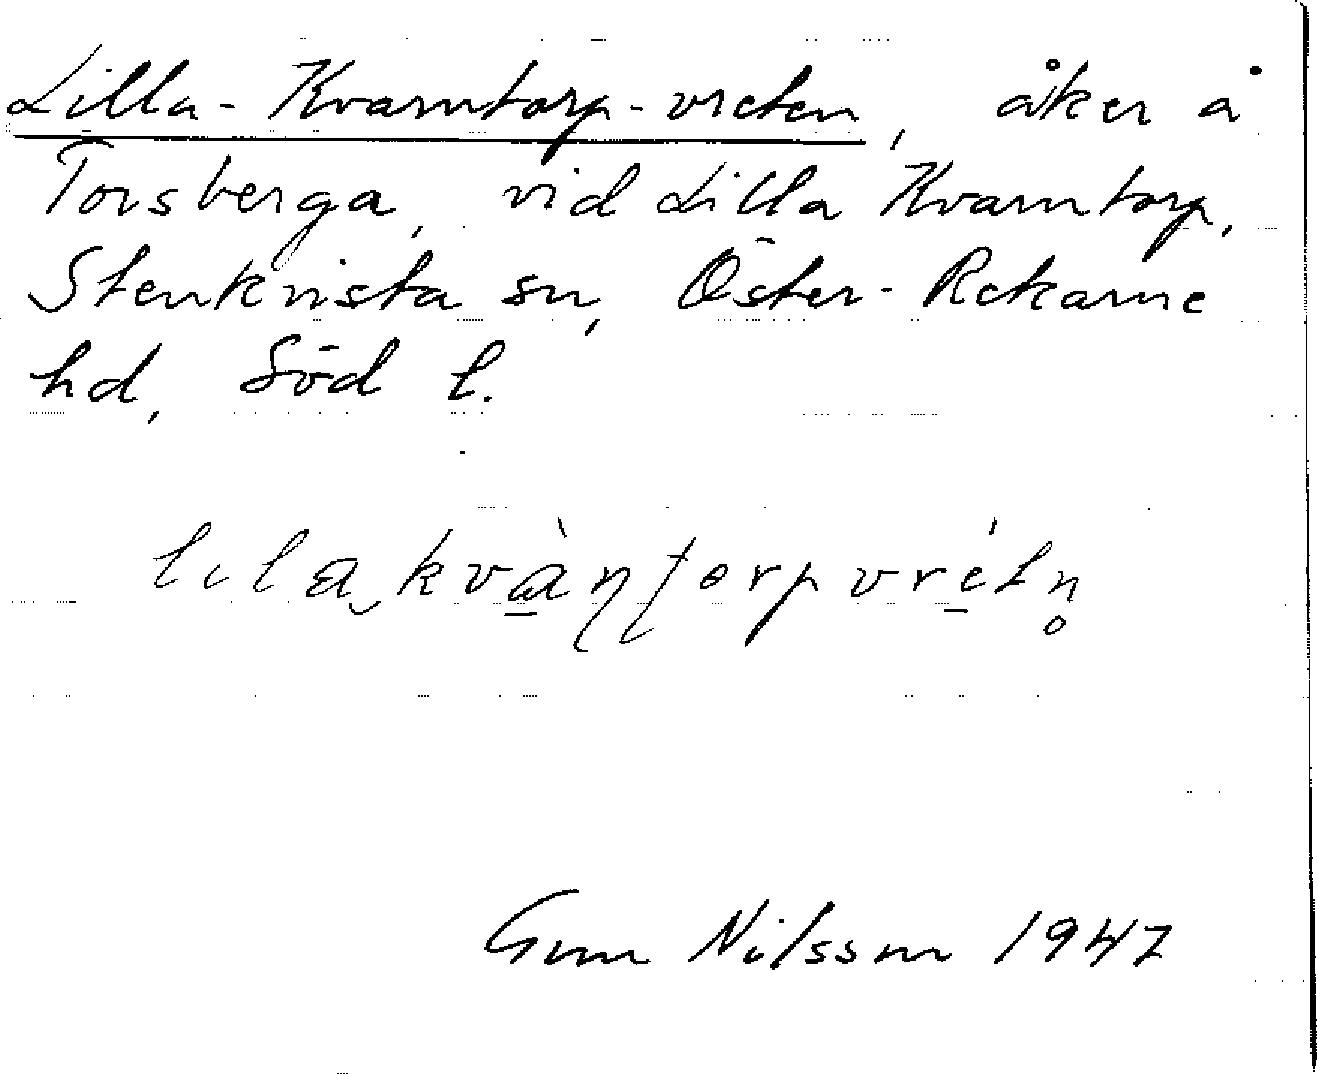 Lilla-Kvarntorp-vreten, åker å
Torsberga, vid Lilla Kvarntorp,
Stenkvista sn, Öster-Rekarne
hd, Söd l.
lila kvàɳʈorpvrétn̥
Gun Nilsson 1947